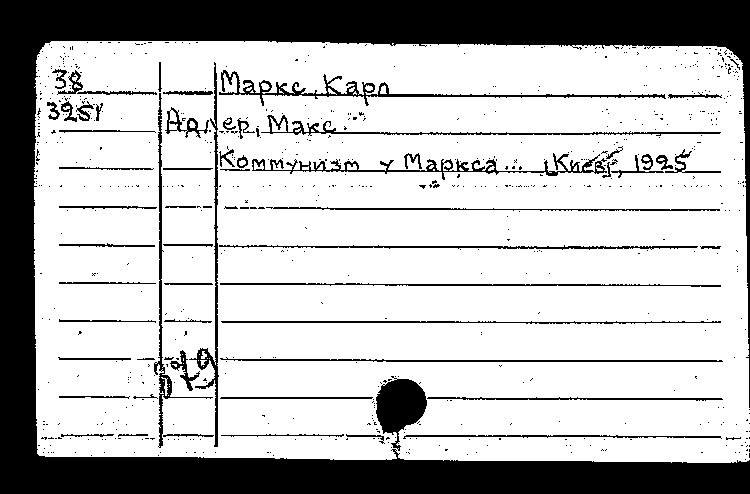 38 Маркс, Карл
3251 Адлер, Макс
Коммунизм у Маркса... [Киев], 1925